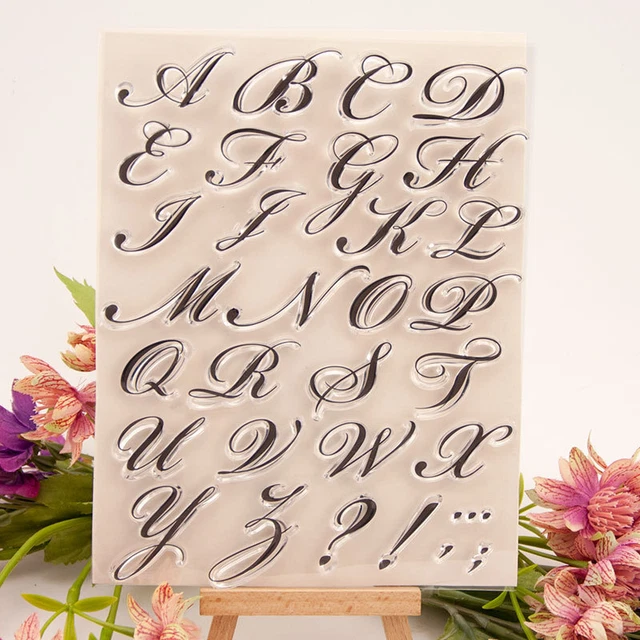 A B C D
E F G H
I J K L
M N O P
Q R S T
U V W X
Y Z ? ! , ... ;